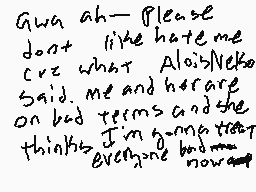 Gwa ah— Please
dont like hate me
cvz what AloisNeko
said. me and her are
on bad terms and she
thinks I'm gonna treat
everyone bad
now